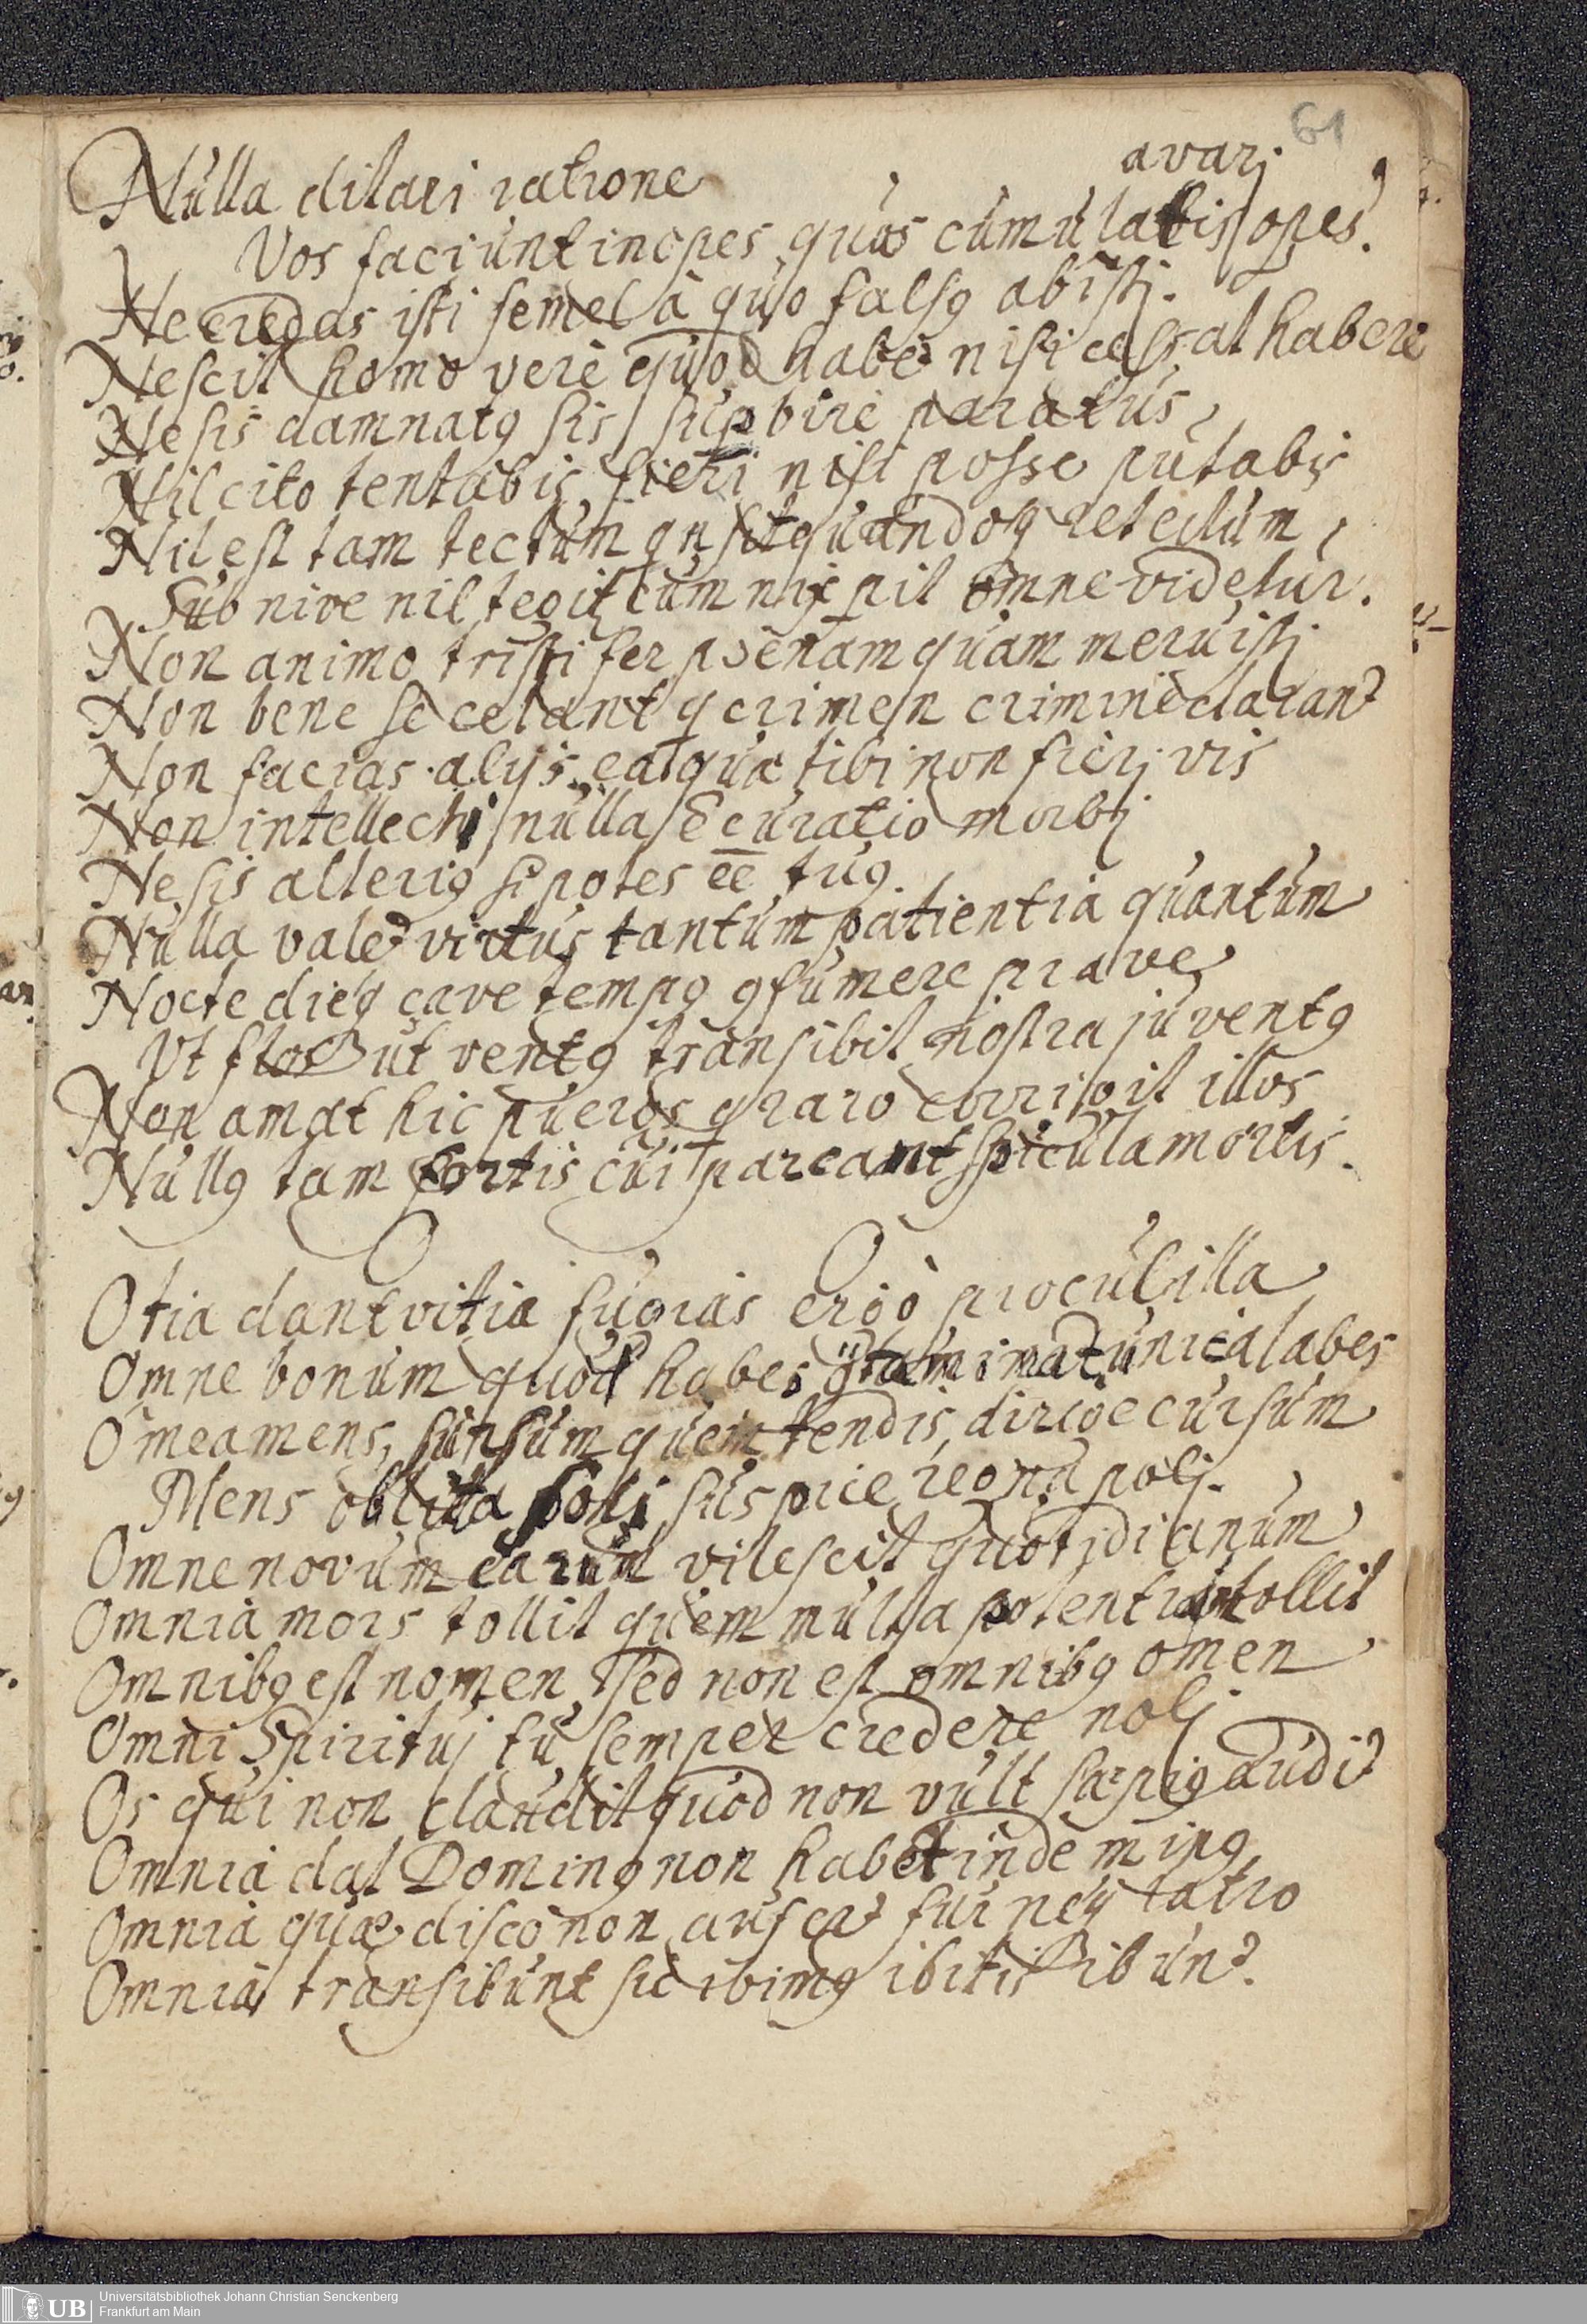 61
Nulla ditari ratione avarj
Vos faciunt inopes quas cumulatis opes.
Ne credas isti semel à quo falsꝰ abistj.
Nescit homo verè quod habet nisi cessat habere
Ne sis damnatꝰ sis supbire paratus,
Nil cito tentabis fieri nisi posse putabis
Nil est tam tectum qn sit quandoq retectum,
Sub nive nil tegit cum nix pit omne videtur.
Non animo tristi fer poenam quam meruistj
Non bene se celant q crimen crimine claran
Non facias alijs ea quæ tibi non fierj vis
Non intellecti nulla ẽ curatio morbj
Ne sis alteriꝰ si potes ēe tuꝰ.
Nulla valet virtus tantum patientia quantum
Nocte dieq cave tempꝰ ꝯsumere prave
Vt flos ut ventꝰ transibit nostra juventꝰ
Non amat hic pueros q raro corrigit illos
Nullꝰ tam fortis cui parcant spicula mortis.
Otia dant vitia fugias ergò procul illa
Omne bonum quod habes ꝯtaminat unica labes
O mea mens, sursum quem tendis, dirige cursum
Mens oblita soli suspice regna polj.
Omne novum carum vilescit quotidianum
Omnia mors tollit quem multa potentia tollit
Omnibꝰ est nomen sed non est omnibꝰ omen
Omni Spirituj tu semper credere nolj
Os qui non claudit quod non vult sæpiꝰ audit
Omnia dat Dominꝰ non habet inde minꝰ
Omnia quæ disco non aufert fur neq latro
Omnia transibunt sic ibimꝰ ibitis ibunt.
Universitätsbibliothek Johann Christian Senckenberg
Frankfurt am Main
UB